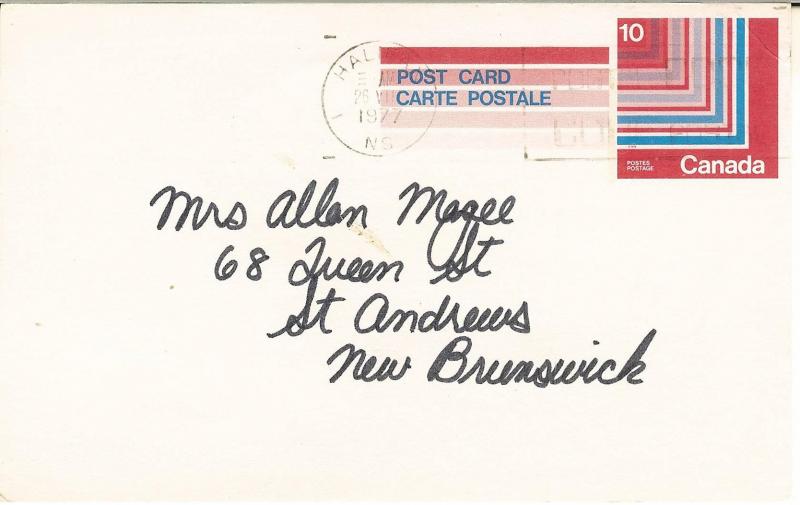 10
POST CARD
CARTE POSTALE
1
26 VII
1977
NS
POSTES
POSTAGE
Canada
Mrs Allan Magee
68 Queen St
St Andrews
New Brunswick